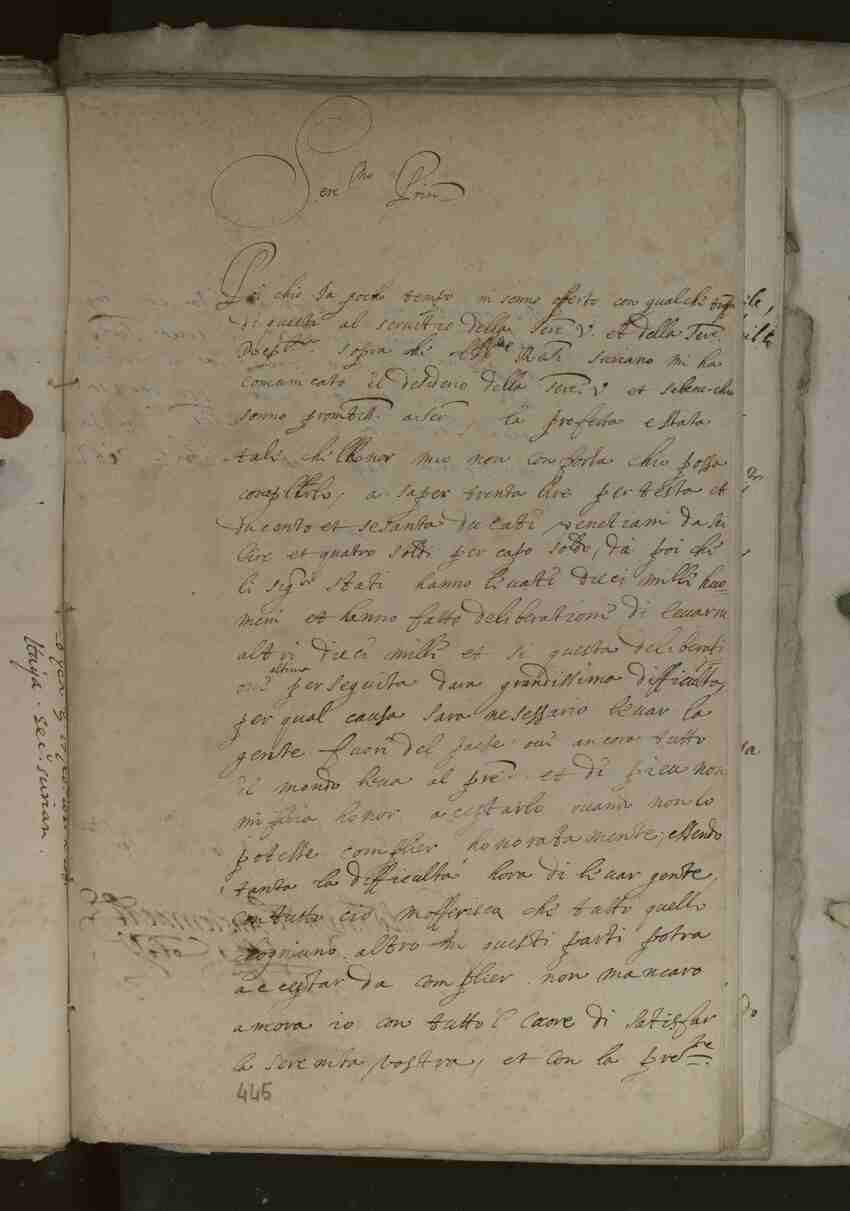 Ser.mo Prin.
Poi chio da pocho tempo in sonno offerto con qualche trupe
di questa al servitio della Sere. V. et della Sere.
Rep.ca sopra che Ill.re Suriano mi ha
comunicato il desiderio della Sere. V. et sebene che
sonno promt.mo a ser la profferta e stata
tale, che lhonor mio non comporta chio possa
complirlo, a saper trenta lire per testa et
ducento et sesanta ducati venetiani da sei
lire et quatro soldi per capo soldo, da poi che
li sig.ri stati hanno levatti dieci milli huo-
meni et hanno fatto deliberationi di levarni
altri dieci milli et si questa deliberati
one ultima perseguita dara grandissima difficulta,
per qual causa sara nesessario levar la
gente fuori del paese ove ancora tutto
il mondo leva al pre.te et di pieu non
mi saria honor aceptarlo quando non lo
potesse complier honoratamente, essendo
tanta la difficulta hora di levar gente,
con tutto cio mofferisca che tutto quello
ogniuno altro in questi parti potra
aceptar da complier non mancaro
ancora io con tutto l caore di satisfar
la serenita vostra, et con la pre.te
445
Haja. sec. surian.